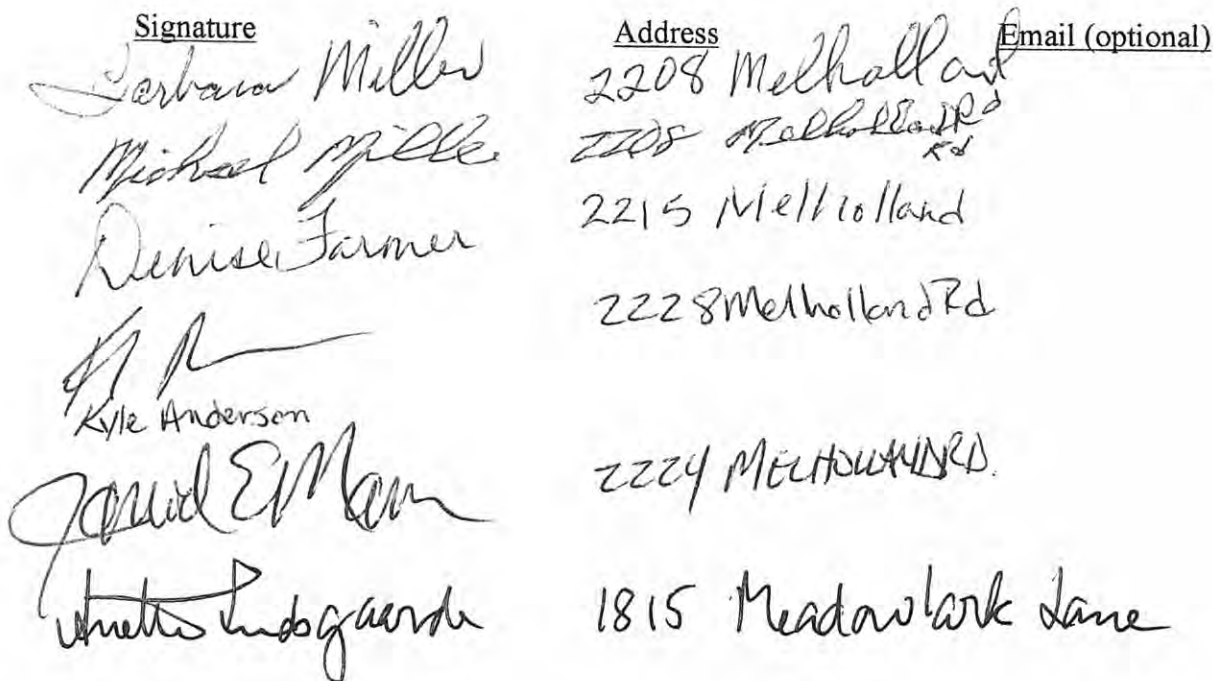 Signature Address Email (optional)
Barbara Miller 2208 Melholland
Michael Miller 2208 Melholland Rd
Rd
Denise Farmer 2215 Melholland
2228 Melholland Rd
Kyle Anderson
E Mann 2224 MELHOLLAND RD.
1815 Meadowlark Lane